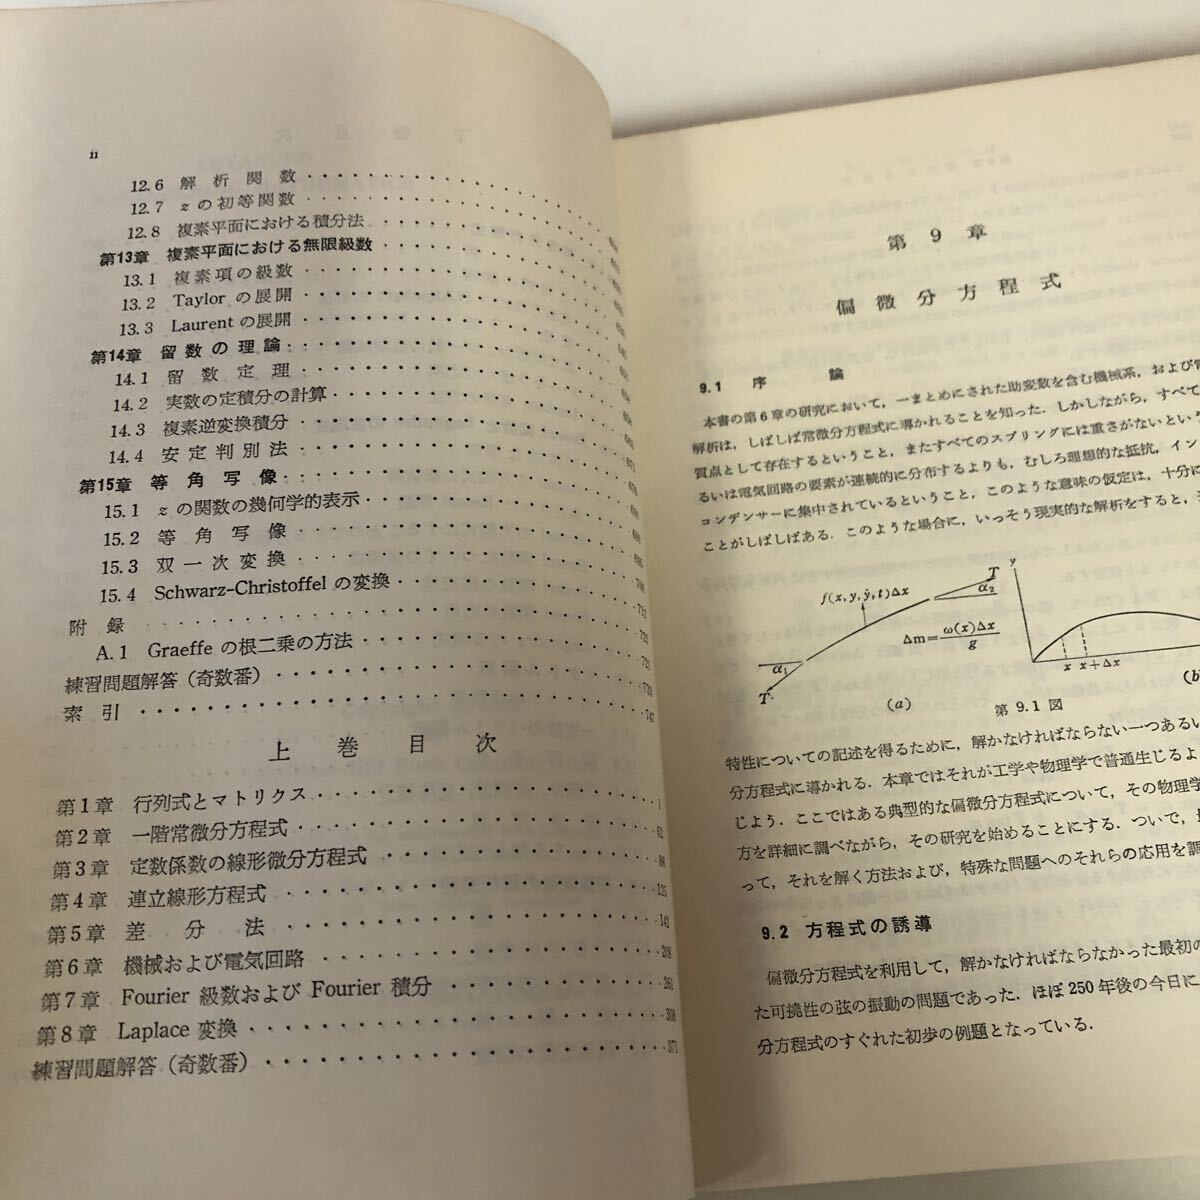 ii
12.6 解析関数
12.7 zの初等関数
12.8 複素平面における積分法
第13章 複素平面における無限級数
13.1 複素項の級数
13.2 Taylor の展開
13.3 Laurentの展開
第14章 留数の理論
14.1 留数定理
14.2 実数の定積分の計算
14.3 複素逆変換積分
14.4 安定判別法 671
第15章 等角写像
15.1 zの関数の幾何学的表示
15.2 等角写像
15.3 双一次変換
15.4 Schwarz-Christoffel の変換
附録 712
A.1 Graeffe の根二乗の方法
練習問題解答(奇数番)
索引 747
上巻目次
第1章 行列式とマトリクス 1
第2章 一階常微分方程式 62
第3章 定数係数の線形微分方程式 88
第4章 連立線形方程式 125
第5章 差分法 142
第6章 機械および電気回路 208
第7章 Fourier 級数および Fourier 積分 261
第8章 Laplace 変換 308
練習問題解答(奇数番) 371
第9章
偏微分方程式
9.1 序論
本書の第6章の研究において,一まとめにされた助変数を含む機械系,および
解析は,しばしば常微分方程式に導かれることを知った.しかしながら,すべて
質点として存在するということ,またすべてのスプリングには重さがないという
るいは電気回路の要素が連続的に分布するよりも,むしろ理想的な抵抗,イン
コンデンサーに集中されているということ,このような意味の仮定は,十分に
ことがしばしばある.このような場合に,いっそう現実的な解析をすると,
f(x, y, ẏ, t)Δx
T
α₂
Δm=ω(x)Δx/g
α₁
T
(a)
y
x x+Δx
(b
第 9.1 図
特性についての記述を得るために,解かなければならない一つあるい
分方程式に導かれる.本章ではそれが工学や物理学で普通生じるよ
じよう.ここではある典型的な偏微分方程式について,その物理学
方を詳細に調べながら,その研究を始めることにする.ついで,
って,それを解く方法および,特殊な問題へのそれらの応用を調
9.2 方程式の誘導
偏微分方程式を利用して,解かなければならなかった最初の
た可撓性の弦の振動の問題であった.ほぼ250年後の今日に
分方程式のすぐれた初歩の例題となっている.